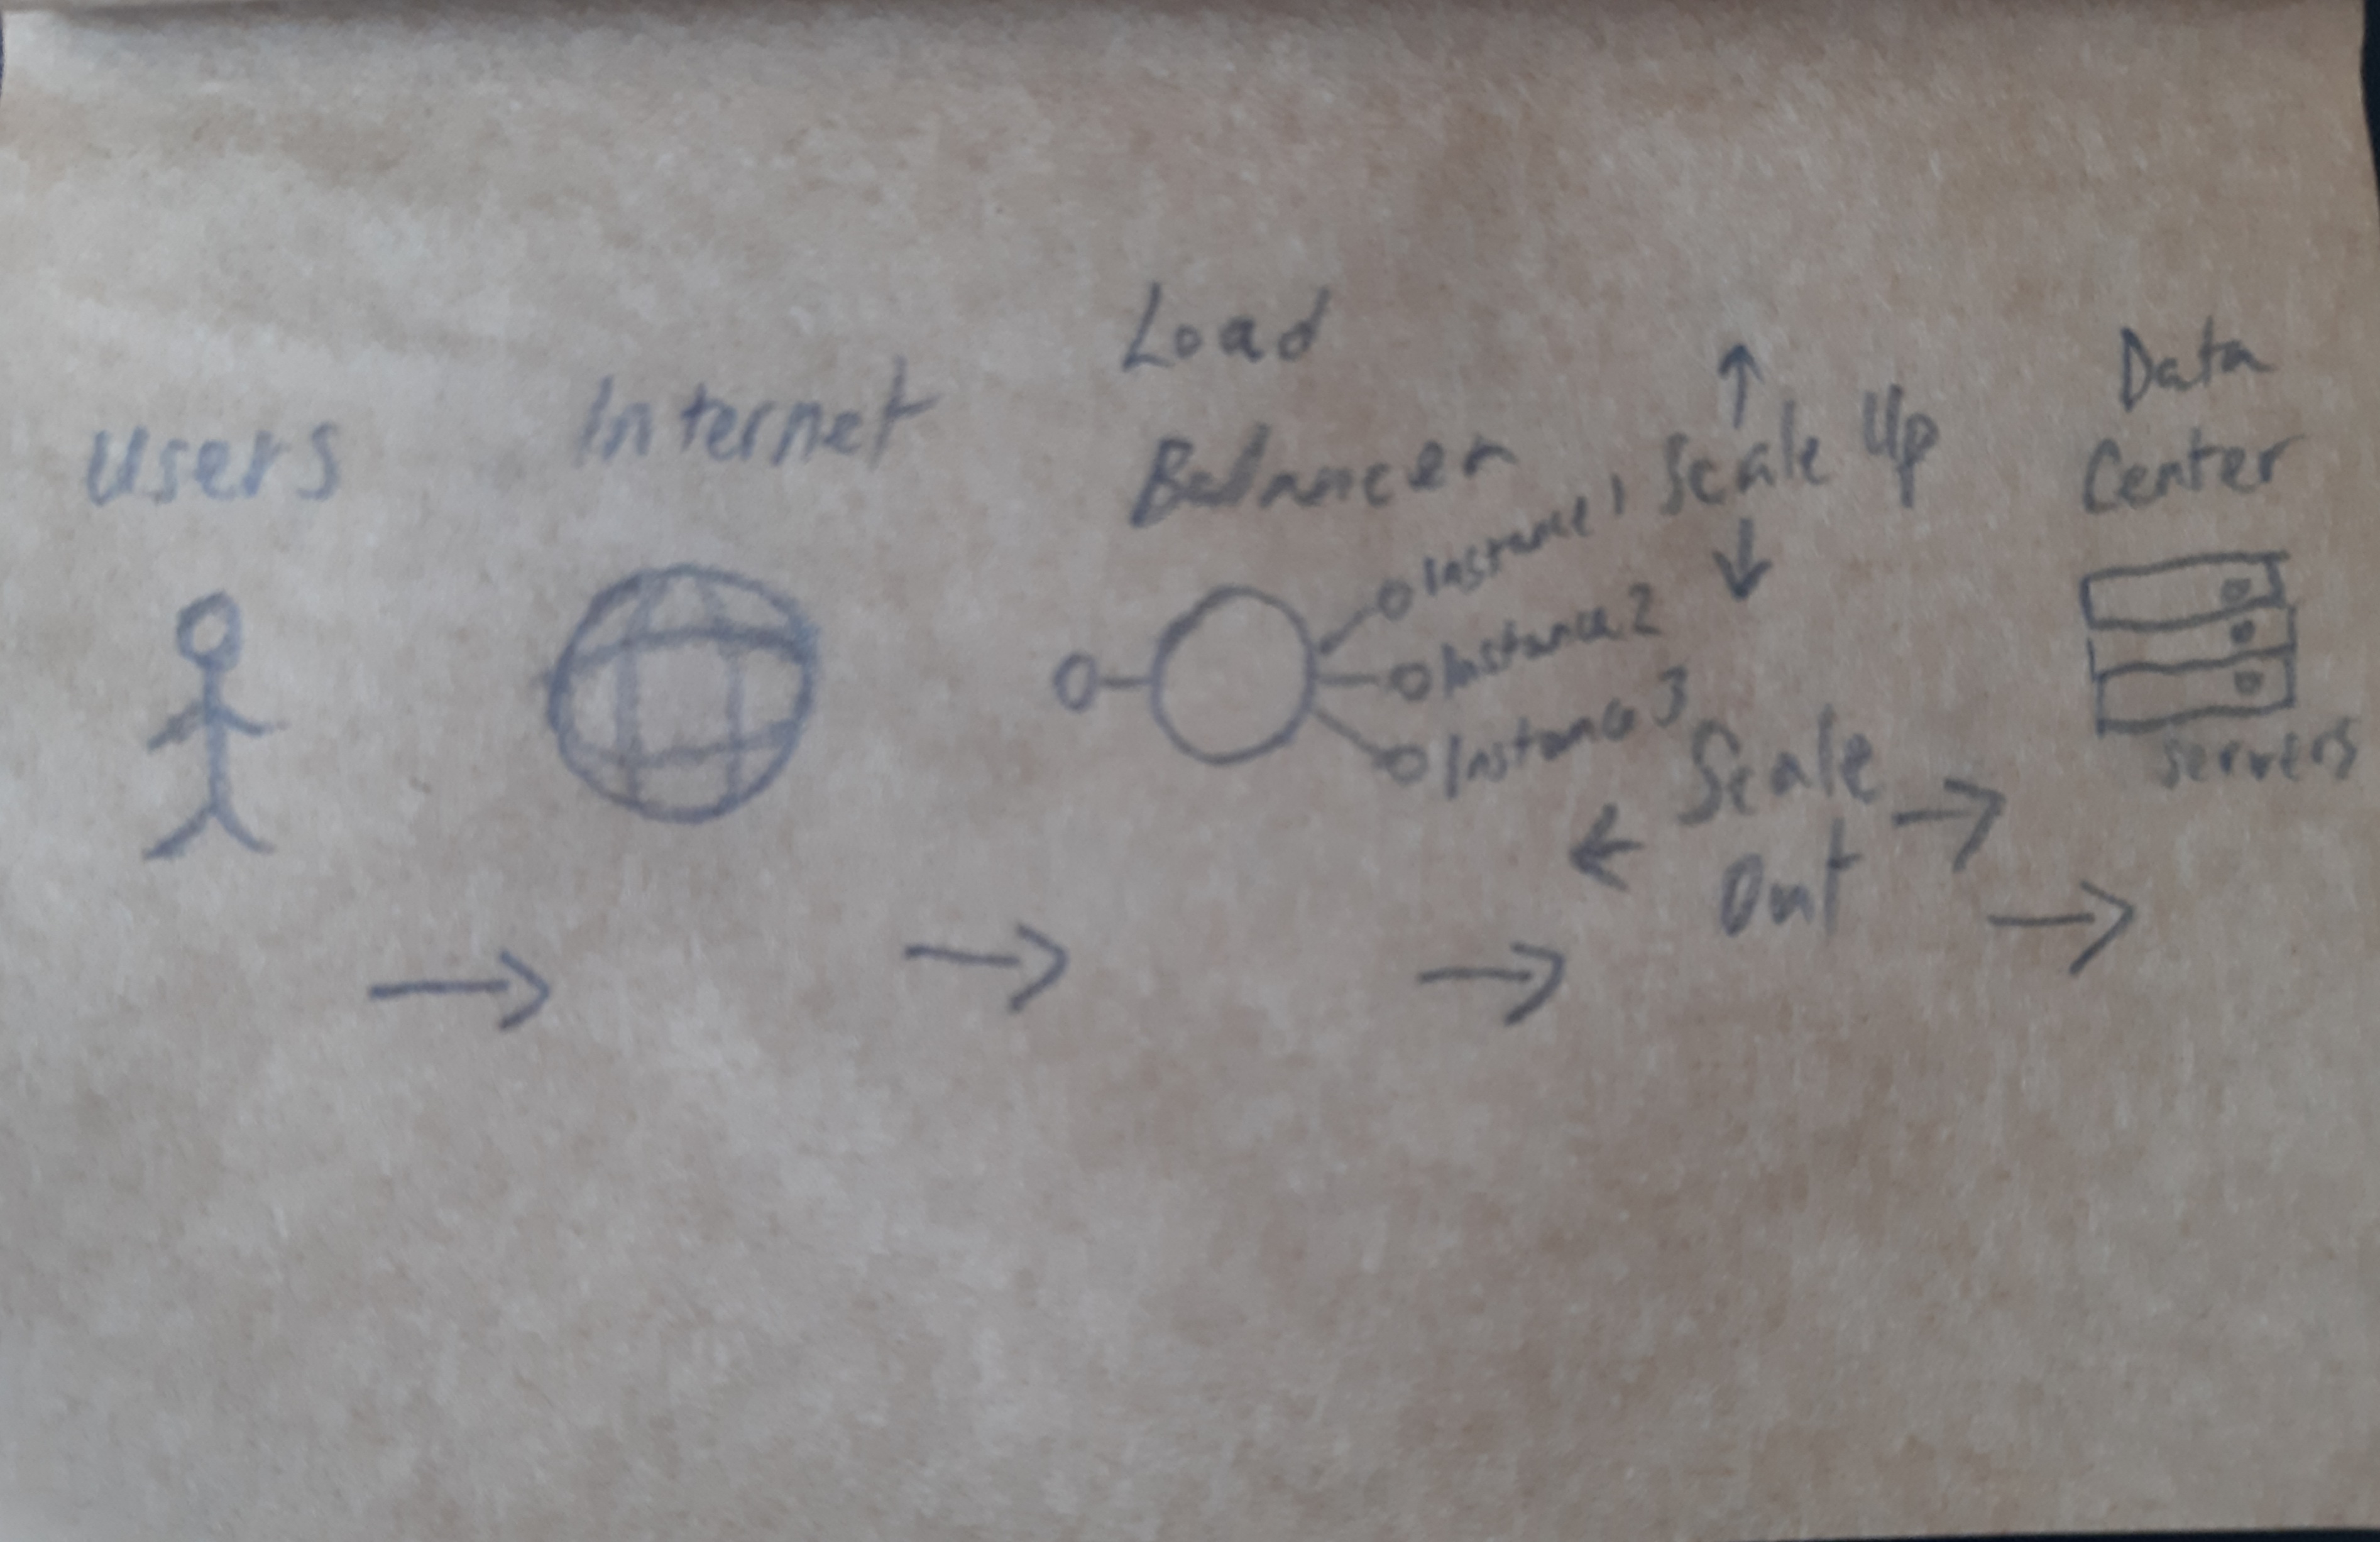 Users
Internet
Load
Balancer
Instance 1
Instance 2
Instance 3
Scale Up
Scale
Out
Data
Center
servers